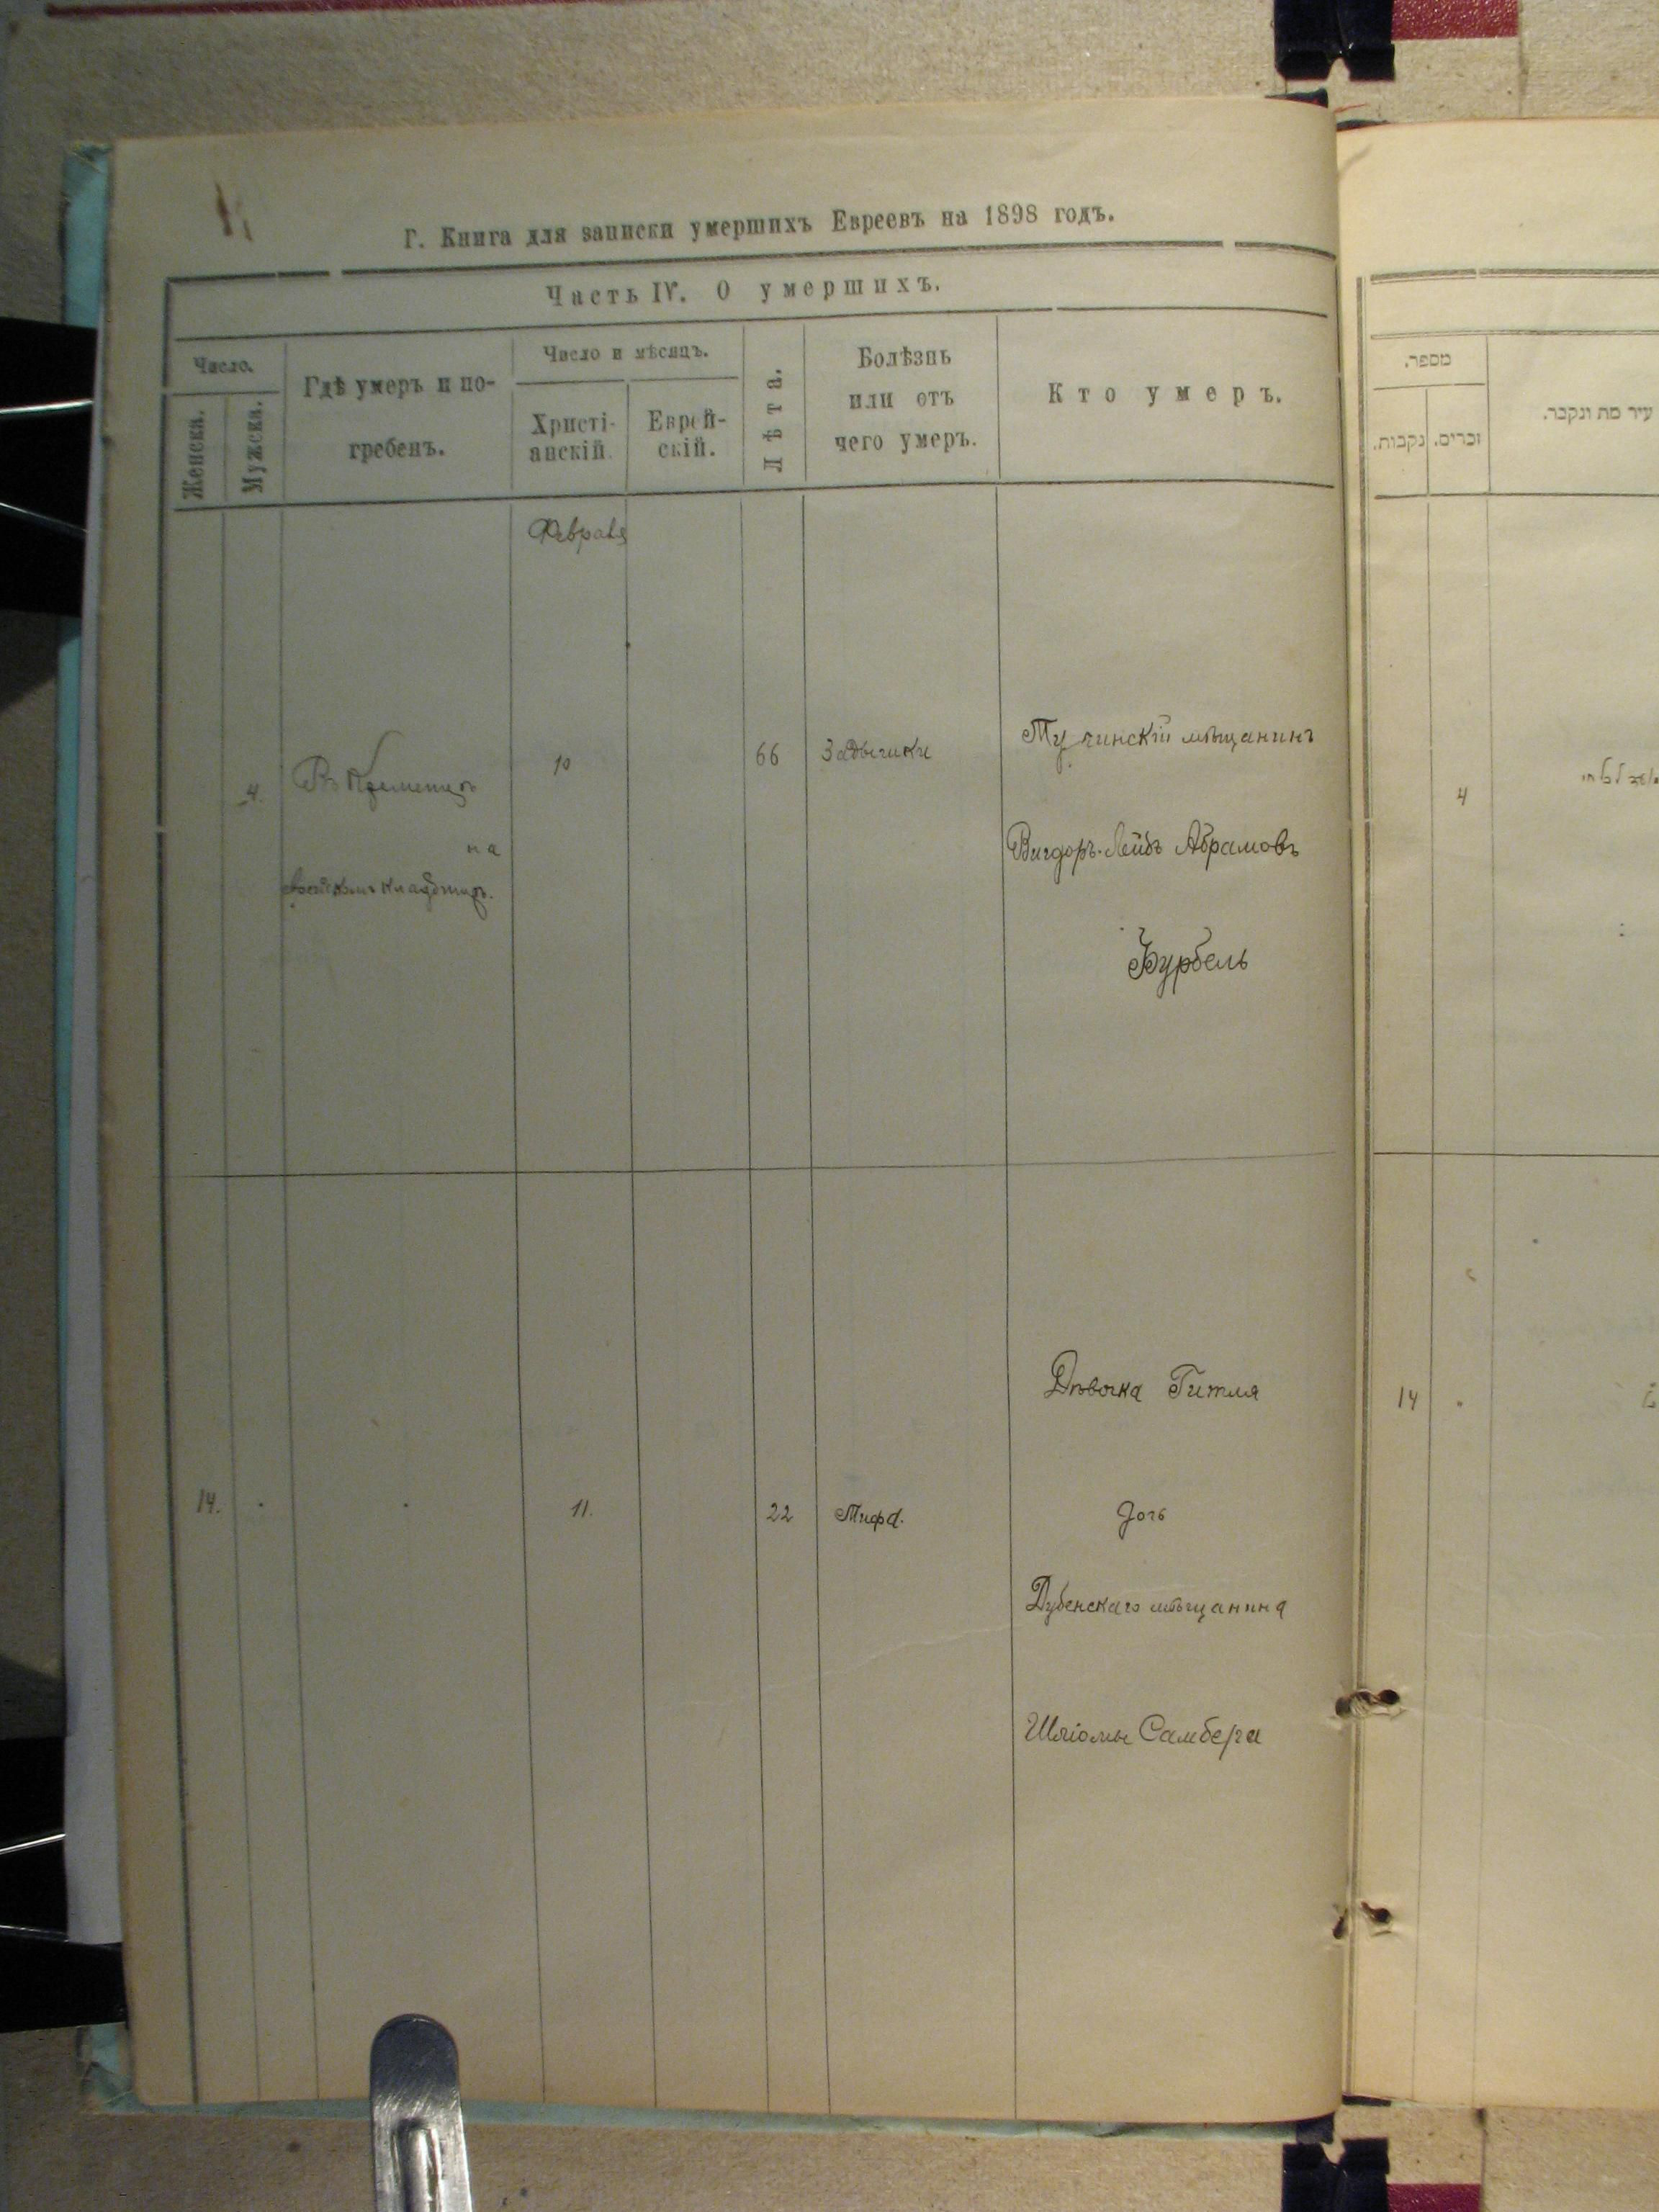 Г. Книга для записки умершихъ Евреевъ на 1898 годъ.
Часть IV. О умершихъ.
Число.
Женска.
Мужска.
Гдѣ умеръ и по-
гребенъ.
Число и мѣсяцъ.
Христі-
анскій.
Еврей-
скій.
Лѣта.
Болѣзнь
или отъ
чего умеръ.
Кто умеръ.
Февраля
4.
Въ Кременцѣ
на
еврейскомъ кладбищѣ.
10
66
Задышки
Тучинскій мѣщанинъ
Вигдоръ-Лейбъ Абрамовъ
Бурбель
14.
11.
22
Тифа.
Дѣвочка Гитля
Дочь
Дубенскаго мѣщанина
Шліомы Самбера
מספר.
נקבות.
זכרים.
עיר מת ונקבר.
4
14